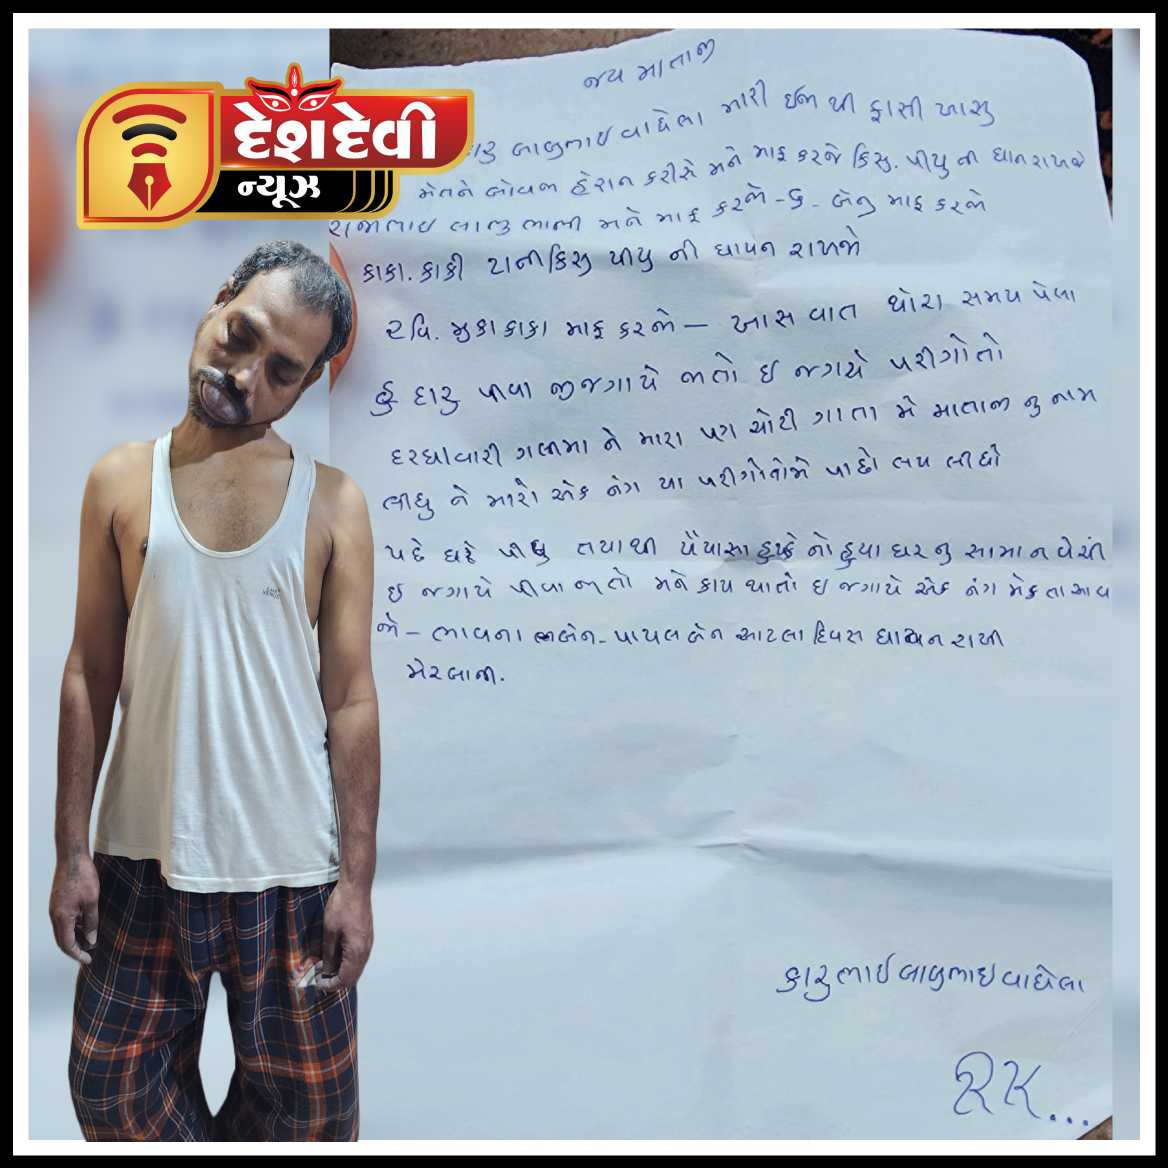 દેશદેવી
ન્યૂઝ
જય માતાજી
બાબુભાઈ વાઘેલા મારી ઈજા થી ફાસી ખાસુ
મેતને બોવજ હેરાન કરીસે મને માફ કરજે કિસુ. પીયુ ના ધાન રાખજે
રાજાભાઇ લાલુ ભાભી મને માફ કરજો - કુ - બેનુ માફ કરજો
કાકા. કાકી ટાની કિસુ પીયુ ની ધાયન રાખજો
રવિ. મુકા કાકા માફ કરજો – ખાસ વાત થોરા સમય પેલા
હું દારૂ પીવા જીજગાયે જાતો ઈ જગાયે પરીગોતો
દરઘાવારી ગલીમા ને મારા પગ ચોટી ગાતા મે માતાજી નુ નામ
લીધુ ને મારો એક નંગ યા પરીગોતોમે પાછો લય લીધો
પછે ઘરે પીધુ તયાથી પૈયાસા નો હુયા ઘર નુ સામાન વેચી
ઈ જગાયે પીવા જાતો મને કાય થાતો ઇ જગાયે એક નંગ મેકુતા આવ
જો – ભાવના બેન - પાયલ બેન આટલા દિવસ ધાયન રાખી
મેરબાની.
કારૂભાઈ બાબુભાઇ વાઘેલા